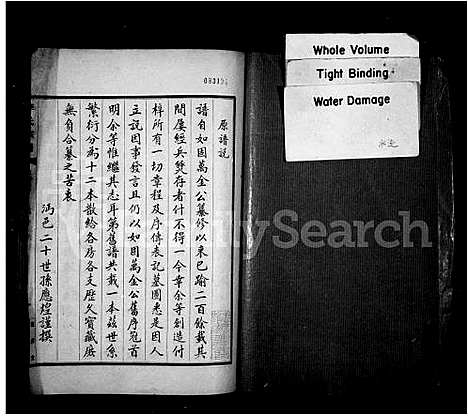 原譜說
譜自如固萬金公纂修以來已踰二百餘載其
間屢經兵燹存者什不得一今幸余等創造付
梓所有一切章程及序傳表記墓圖悉是因人
立說因事發言且仍以如固萬金公舊序冠首
明余等惟繼其志耳第舊譜共載一本茲世系
繁衍分為十二本散給各房各支歷久寶藏庶
無負合纂之苦衷
溈邑二十世孫應煌謹撰
Whole Volume
Tight Binding
Water Damage
水迹
FamilySearch